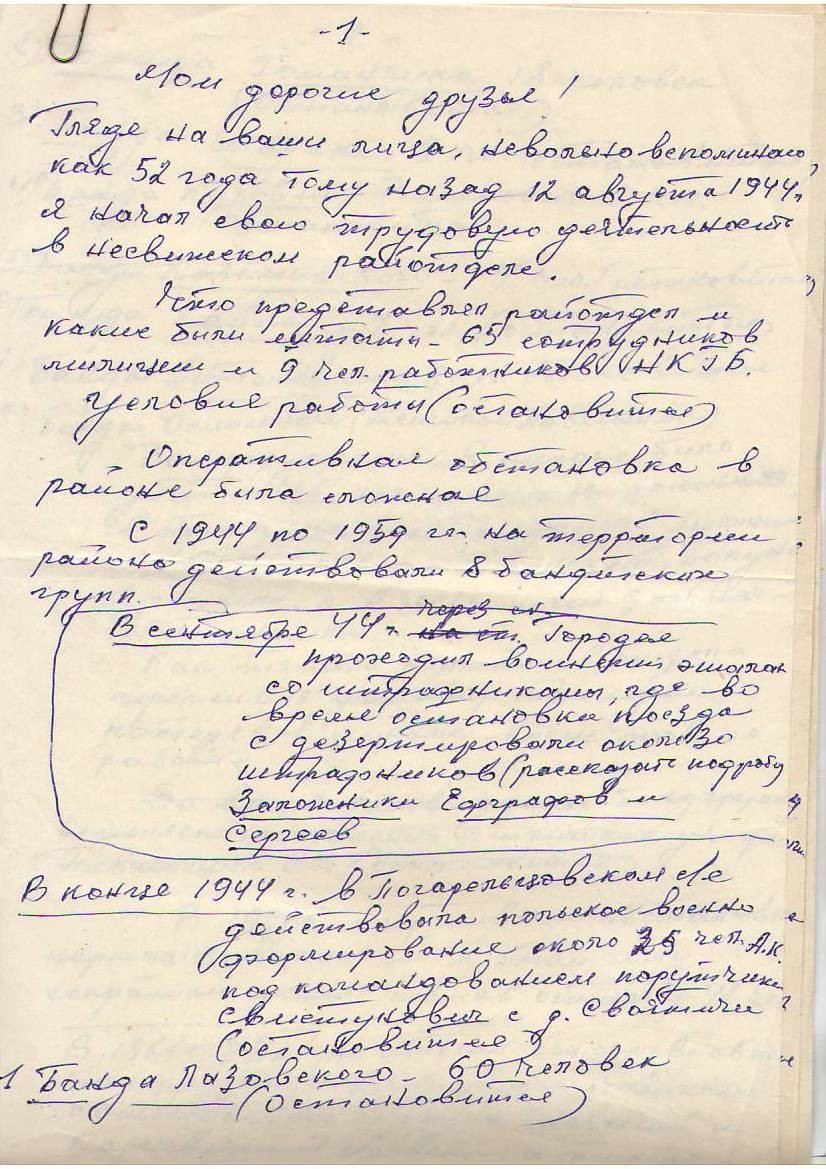 -1-
Мои дорогие друзья!
Глядя на ваши лица, невольно вспоминаю,
как 52 года тому назад 12 августа 1944 г.
я начал свою трудовую деятельность
в несвижском райотделе.
Что представлял райотдел и
какие были штаты - 65 сотрудников
милиции и 9 чел. работников НКГБ.
Условия работы (остановится)
Оперативная обстановка в
районе была сложная
С 1944 по 1950 гг. на территории
района действовали 8 бандитских
групп.
через ст.
В сентябре 44 г. на ст. Городея
проходил воинский эшалан
со штрафниками, где во
время остановки поезда
с дезертировали около 30
штрадоников (рассказать подробн
Заложники Ефграфов и
Сергеев
В конце 1944 г. в Погарельцовском с/с
действовала польское военно
формирование около 25 чел. А.К.
под командованием порутчика
Свистунович с д. Святичи
(остановится)
1 Банда Лазовского - 60 человек
(Остановится)